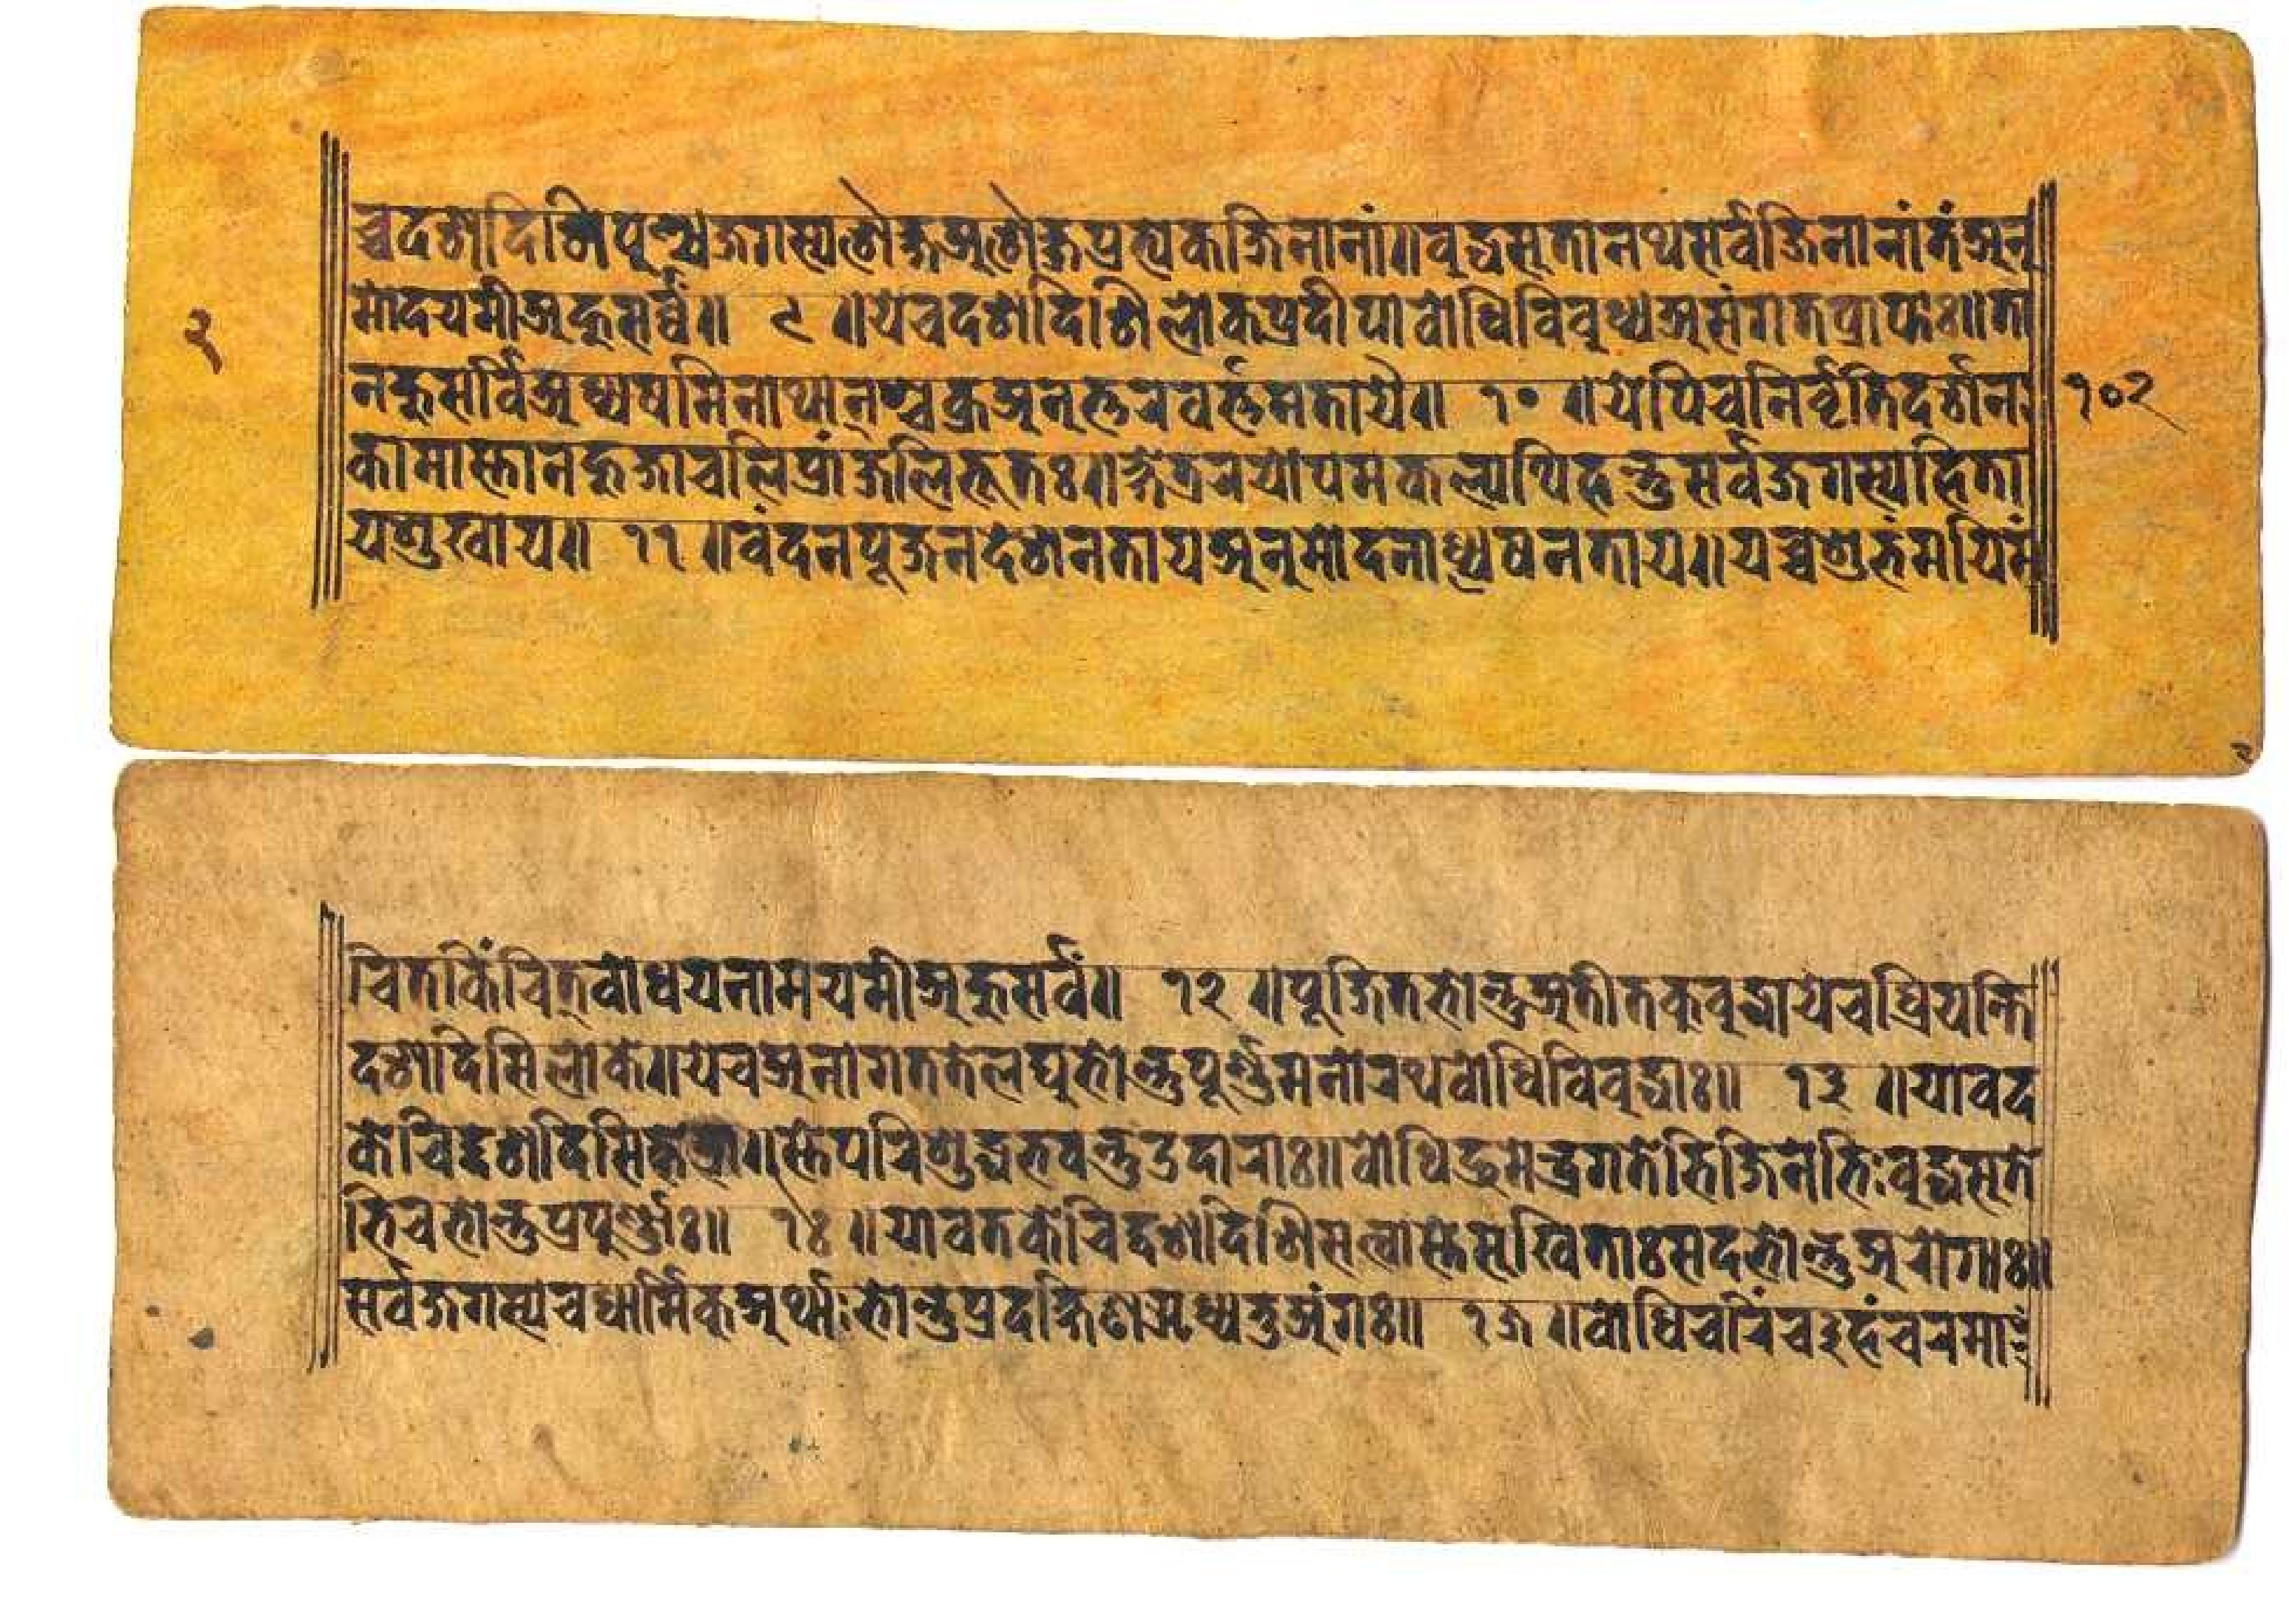 च्चदशदिशिपून्यजगस्यशैक्षअशैक्षप्रत्येकजिनानां॥वुद्धसुतानथसर्वजिनानांतंअनु
२
मोदयमीअहुसर्वं॥ ९ ॥येचदशदिशिलोकप्रदीपावोधिविवुध्यअसंगतप्राप्ताः॥ता
नहुसर्विअध्येषमिनाथान्श्चक्रअनुत्तरवर्त्तमतायै॥ १० ॥येपिचनिर्वृतिदर्शन
१०२
कामास्तानहुजाचलिप्रांजलिभूतः॥क्षेत्ररयोपमकल्पथिहन्तुसर्वजगस्यहिता
यशुखाय॥ ११ ॥वंदनपूजनदेशनतायअनुमोदनाध्येषनताय॥यच्चशुभंमयिमं
चितकिंचित्वोधयनामयमीअहुसर्वं॥ १२ ॥पूजितभोन्तुअतीतकुवुद्धायेचध्रियन्ति
दशदिसिलोके॥येचअनागततेलघुभोन्तुपूर्ण्णमनोरथवोधिविवुद्धाः॥ १३ ॥यावद
केचिद्दशदिसिक्षेत्रा॥स्तेपरिशुद्धभवन्तुउदाराः॥वोधिद्रुमेन्द्रगतेभिजिनेभिःवुद्धसुते
भिचभोन्तुप्रपूर्ण्णाः॥ १४ ॥यावतकेचिद्दशदिशिसत्वास्तेसुखिताःसदभोन्तुअरोगाः॥
सर्वजगस्यचधार्मिकुअर्थ्थःभोन्तुप्रदक्षिणऋध्यतुअंगः॥ १५ ॥वोधिचरिंचइहंचरमा